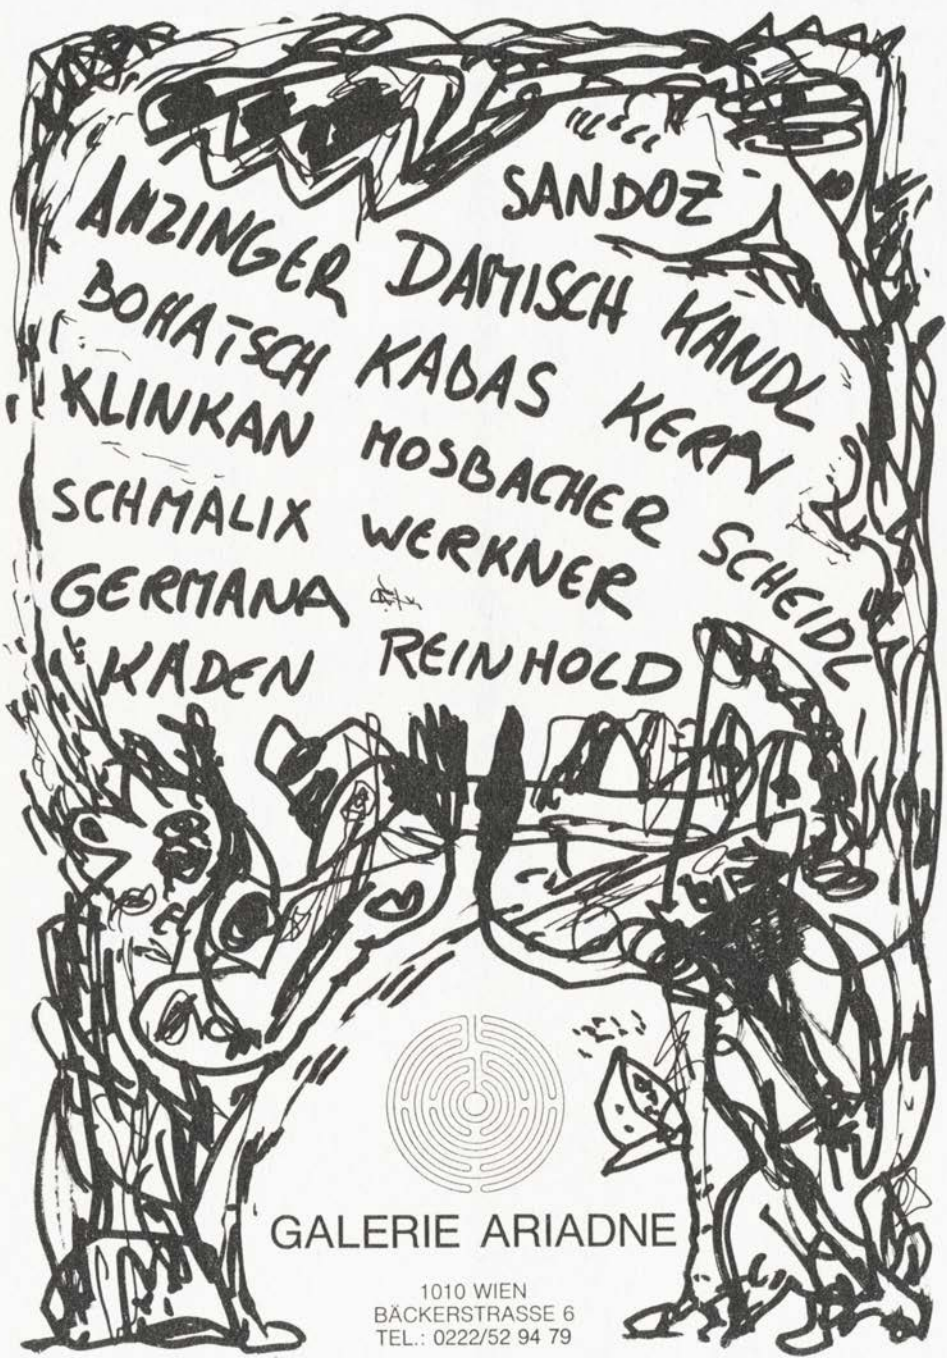 SANDOZ
ANZINGER DAMISCH KANDL
BOHATSCH KABAS KERN
KLINKAN MOSBACHER SCHEIDL
SCHMALIX WERKNER
GERMANA
KADEN REINHOLD
GALERIE ARIADNE
1010 WIEN
BÄCKERSTRASSE 6
TEL.: 0222/52 94 79